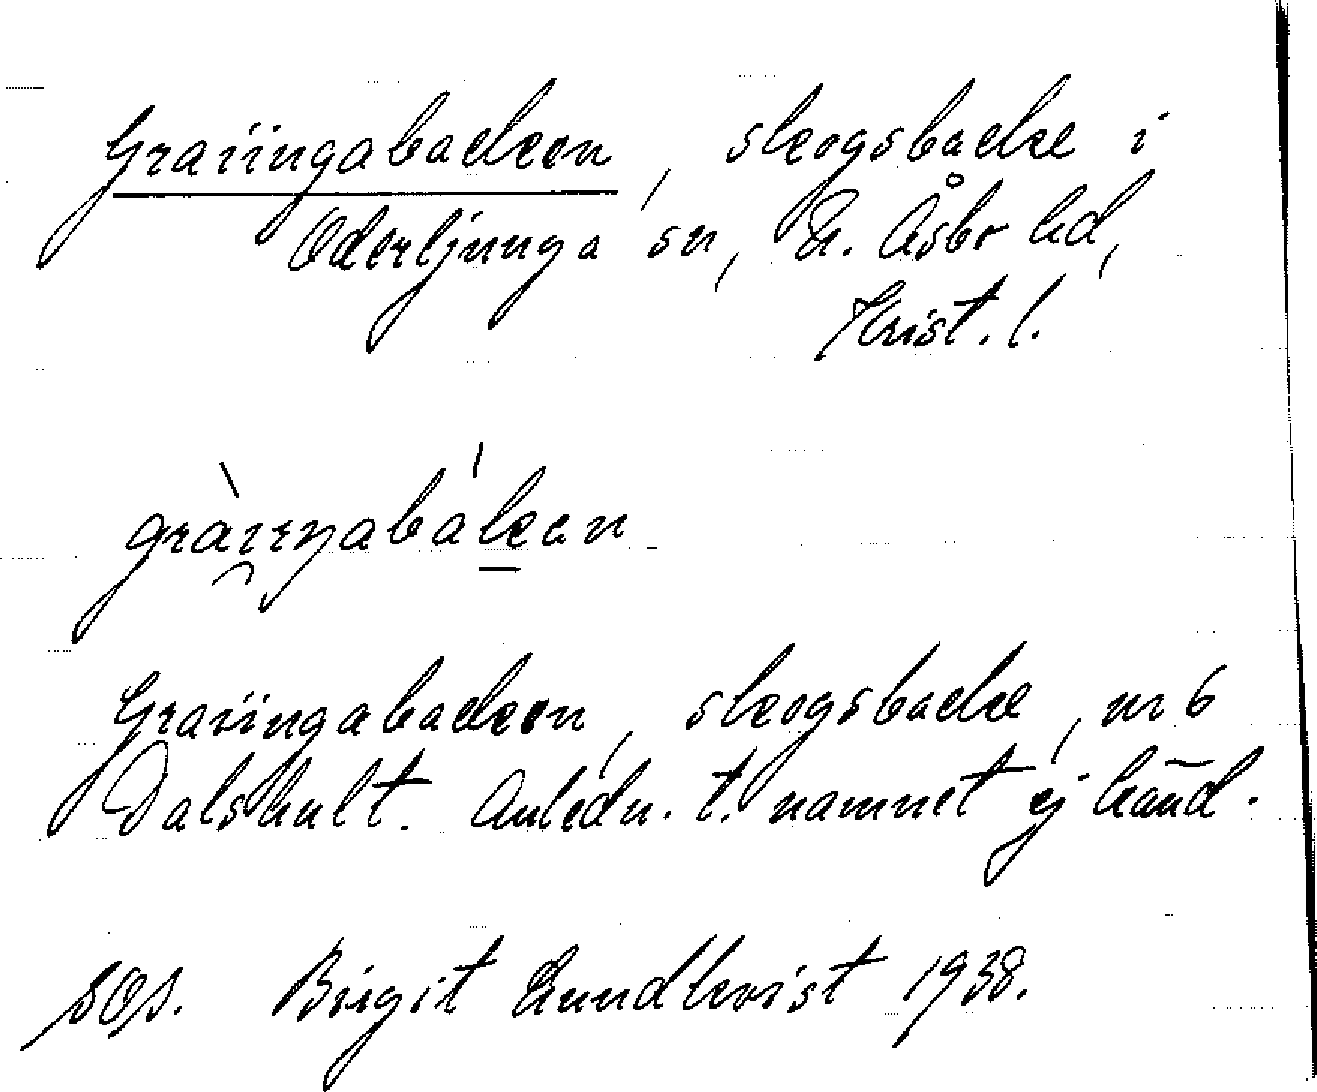 Graiingabacken, skogsbacke i
Oderljunga sn, N. Åsbo hd,
Krist. l.
Graiingabacken, skogsbacke, nr 6
Dalshult. Anledn. t. namnet ej känd.
SOS. Birgit Lundkvist 1938.